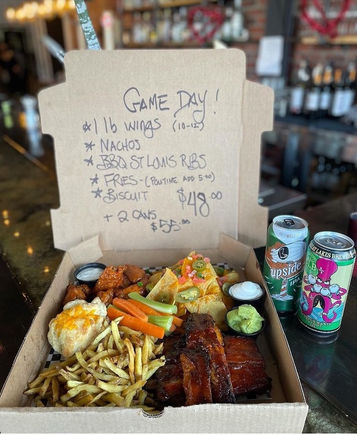 GAME DAY!
* 1 lb wings (10-12)
* NACHOS
* BBQ ST LOUIS RIBS
* FRIES - (POUTINE ADD 5.00)
* BISCUIT $48.00
+ 2 CANS
$55.00
upside